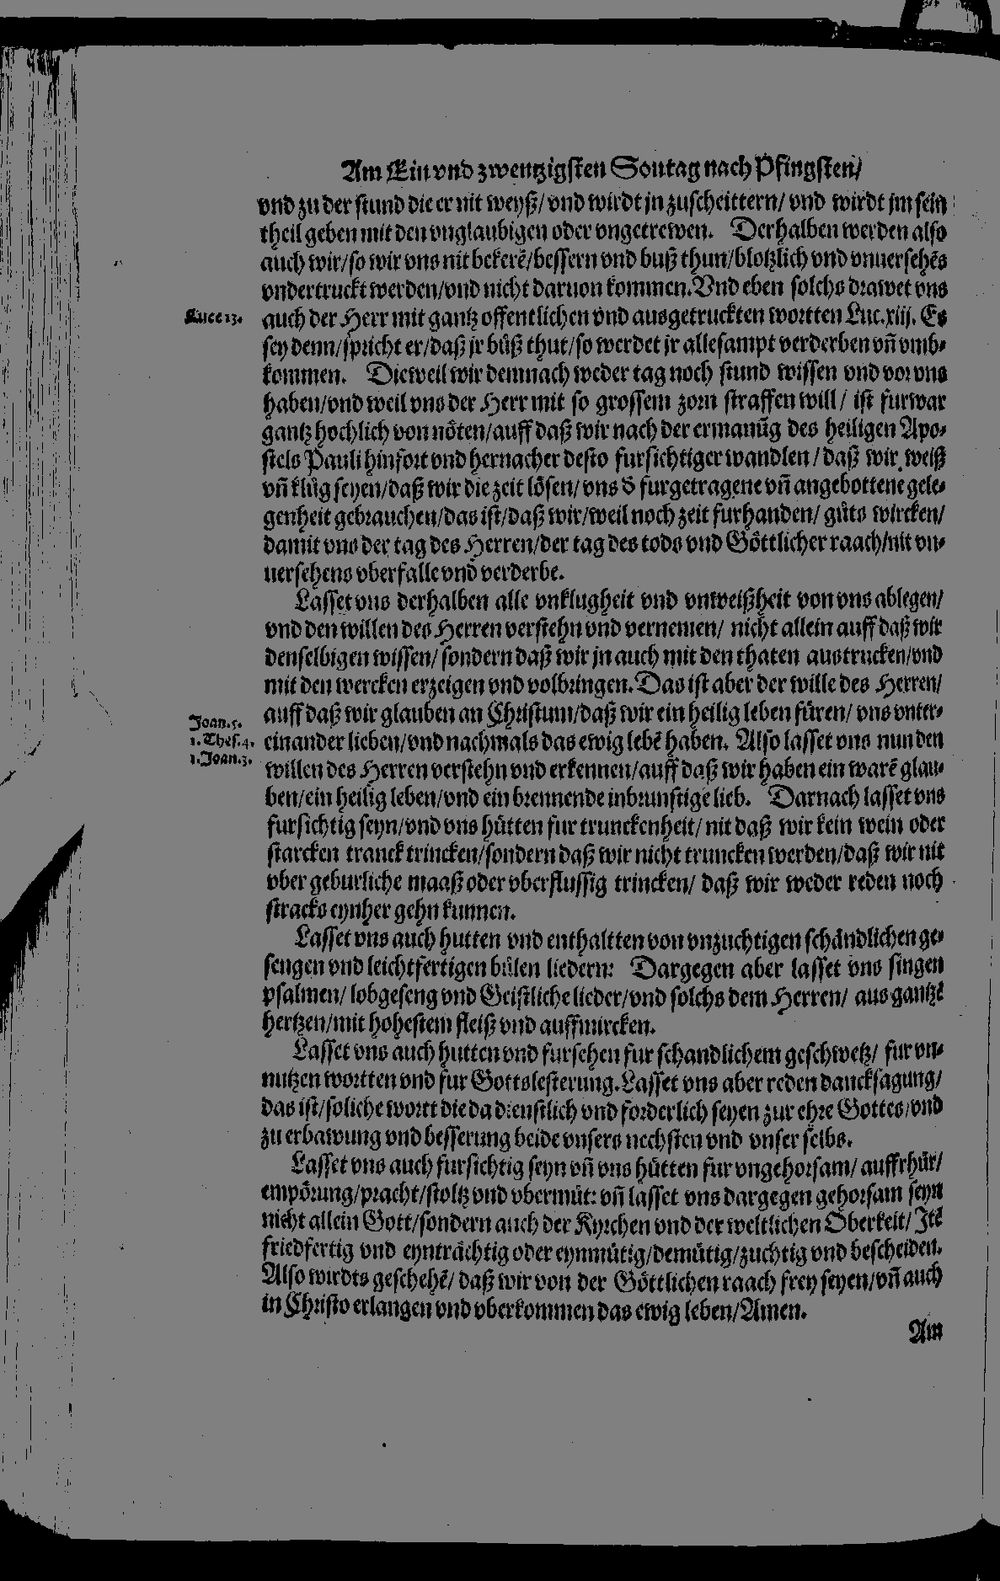 Am Ein vnd zwentzigsten Sontag nach Pfingsten/
vnd zu der stund die er nit weyß/ vnd wirdt jn zuscheittern/ vnd wirdt jm sein
theil geben mit den vnglaubigen oder vngetrewen. Derhalben werden also
auch wir/ so wir vns nit bekerē/ bessern vnd buß thun/ blotzlich vnd vnuersehēs
vndertruckt werden/ vnd nicht daruon kommen. Vnd eben solchs drawet vns
Lucę 13.
auch der Herr mit gantz offentlichen vnd ausgetruckten wortten Luc. xiij. Es
sey denn/ spricht er/ daß jr bůß thut/ so werdet jr allesampt verderben vñ vmb-
kommen. Dieweil wir demnach weder tag noch stund wissen vnd vor vns
haben/ vnd weil vns der Herr mit so grossem zorn straffen will/ ist furwar
gantz hochlich von nöten/ auff daß wir nach der ermanūg des heiligen Apo-
stels Pauli hinfort vnd hernacher desto fursichtiger wandlen/ daß wir weiß
vñ klůg seyen/ daß wir die zeit lösen/ vns d furgetragene vñ angebottene gele-
genheit gebrauchen/ das ist/ daß wir/ weil noch zeit furhanden/ gůts wircken/
damit vns der tag des Herren/ der tag des tods vnd Göttlicher raach/ nit vn-
uersehens vberfalle vnd verderbe.
Lasset vns derhalben alle vnklugheit vnd vnweißheit von vns ablegen/
vnd den willen des Herren verstehn vnd vernemen/ nicht allein auff daß wir
denselbigen wissen/ sondern daß wir jn auch mit den thaten austrucken/ vnd
mit den wercken erzeigen vnd volbringen. Das ist aber der wille des Herren/
Joan. 5.
auff daß wir glauben an Christum/ daß wir ein heilig leben füren/ vns vnter-
1. Thes. 4.
einander lieben/ vnd nachmals das ewig lebē haben. Also lasset vns nun den
1. Joan. 3.
willen des Herren verstehn vnd erkennen/ auff daß wir haben ein warē glau-
ben/ ein heilig leben/ vnd ein brennende inbrunstige lieb. Darnach lasset vns
fursichtig seyn/ vnd vns hütten fur trunckenheit/ nit daß wir kein wein oder
starcken tranck trincken/ sondern daß wir nicht truncken werden/ daß wir nit
vber geburliche maaß oder vberflussig trincken/ daß wir weder reden noch
stracks eynher gehn kunnen.
Lasset vns auch hutten vnd enthaltten von vnzuchtigen schändlichen ge-
sengen vnd leichtfertigen bůlen liedern: Dargegen aber lasset vns singen
psalmen/ lobgeseng vnd Geistliche lieder/ vnd solchs dem Herren/ aus gantzē
hertzen/ mit hohestem fleiß vnd auffmircken.
Lasset vns auch hutten vnd fursehen fur schandlichem geschwetz/ fur vn-
nutzen wortten vnd fur Gottslesterung. Lasset vns aber reden dancksagung/
das ist/ soliche wortt die da dienstlich vnd forderlich seyen zur ehre Gottes/ vnd
zu erbawung vnd besserung beide vnsers nechsten vnd vnser selbs.
Lasset vns auch fursichtig seyn vñ vns hütten fur vngehorsam/ auffrhůr/
empörung/ pracht/ stoltz vnd vbermůt: vñ lasset vns dargegen gehorsam seyn
nicht allein Gott/ sondern auch der Kyrchen vnd der weltlichen Oberkeit/ Itē
friedfertig vnd eynträchtig oder eynmütig/ demütig/ zuchtig vnd bescheiden.
Also wirdts geschehē/ daß wir von der Göttlichen raach frey seyen/ vñ auch
in Christo erlangen vnd vberkommen das ewig leben/ Amen.
Am